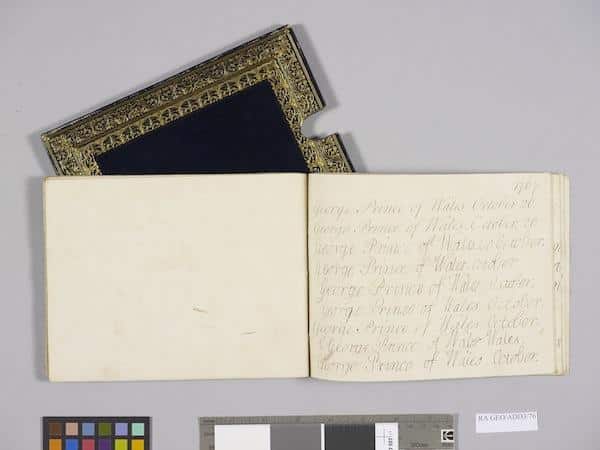 1767
George Prince of Wales October 20
George Prince of Wales October 20
George Prince of Wales October
George Prince of Wales October
George Prince of Wales October
George Prince of Wales October
George Prince of Wales October
George Prince of Wales
George Prince of Wales October
RA GEO/ADD3/76
Kodak